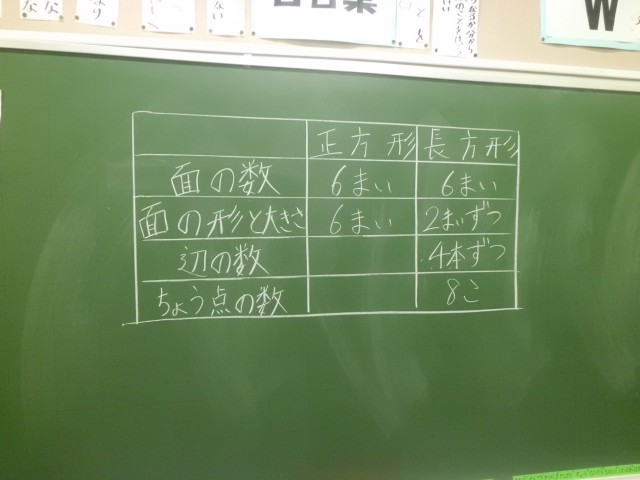 正方形 長方形
面の数 6まい 6まい
面の形と大きさ 6まい 2まいずつ
辺の数 4本ずつ
ちょう点の数 8こ
W